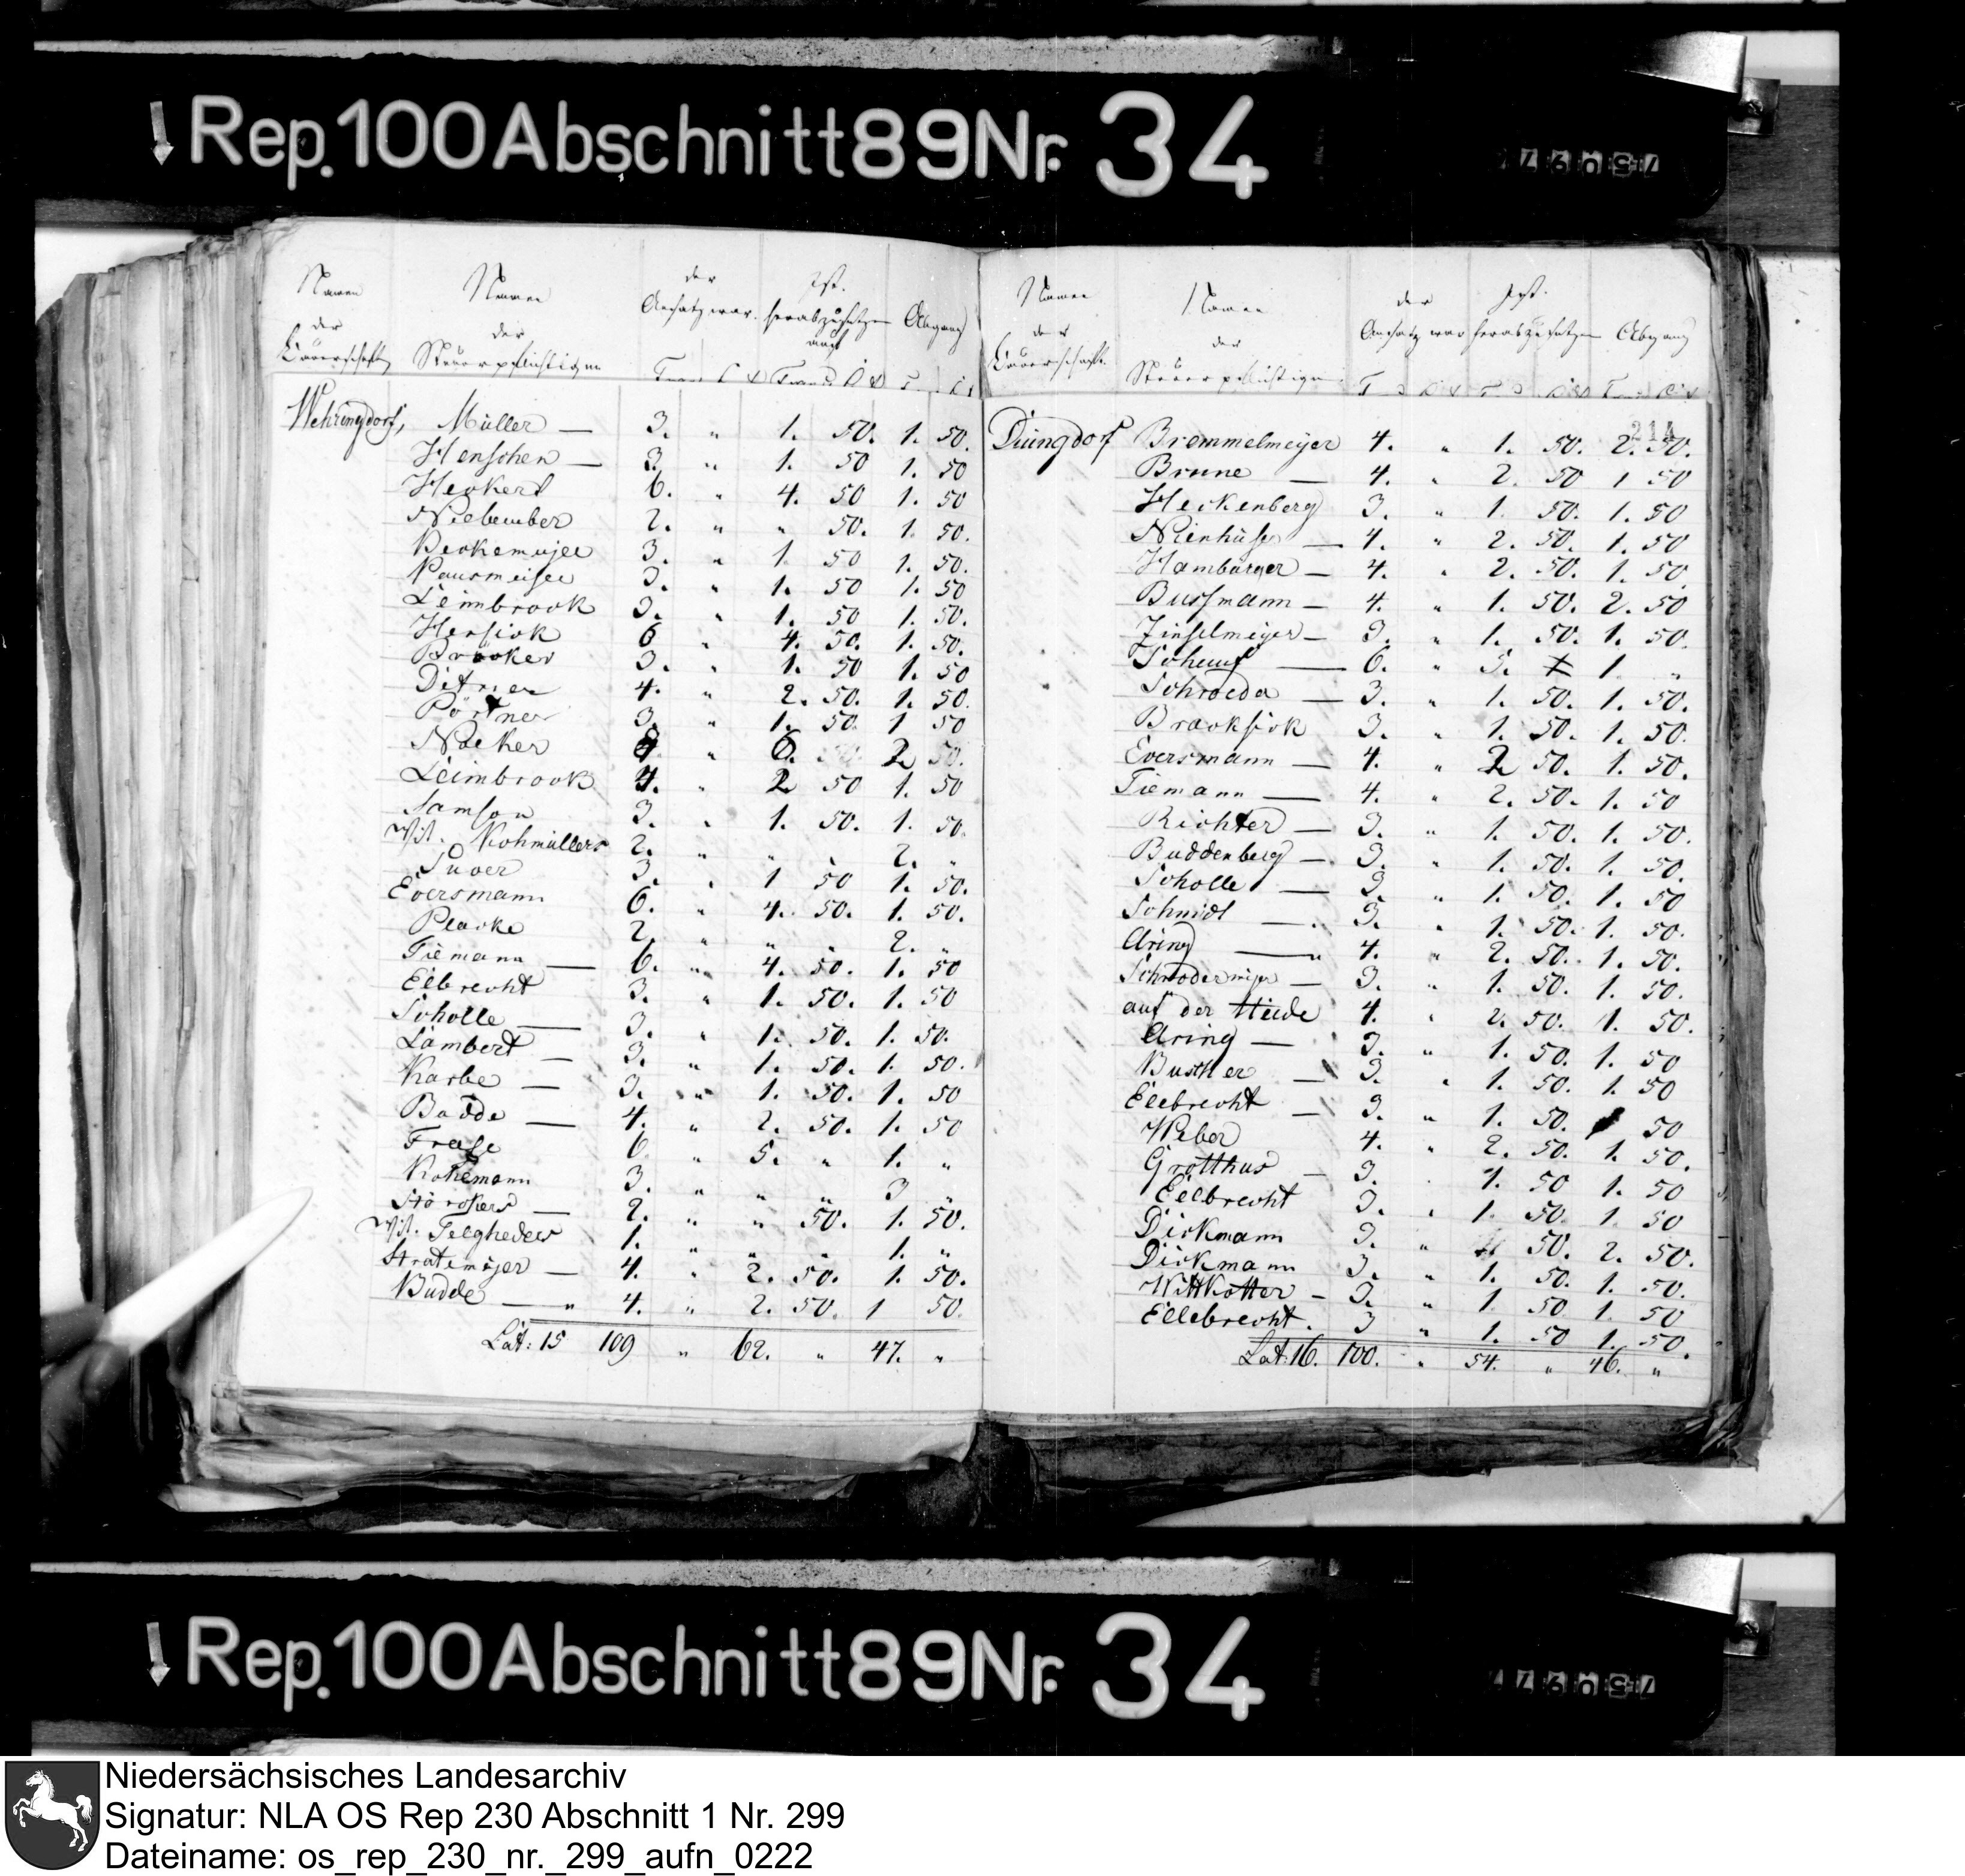 Rep. 100 Abschnitt 89 Nr. 34
Namen der Bauerschaft Namen der Steuerpflichtigen der Ansatz war. Ist. herabzusetzen Abgang
Wehringdorf, Müller — 3. " 1. 50. 1. 50.
Henschen — 3. " 1. 50 1. 50
Heckert 6. " 4. 50 1. 50
2. " " 50. 1. 50.
3. " 1. 50 1. 50.
3. 1. 50 1. 50
Leimbrook 3. " 1. 50 1. 50.
Hersick 6 " 4. 50. 1. 50.
Bröcker 3. " 1. 50 1. 50
4. " 2. 50. 1. 50.
Pörtner 3. " 1. 50. 1 50
" 6. 2 50.
Leimbrook 4. " 2 50 1. 50
Samson 3. " 1. 50. 1. 50.
Wit. Kohmüllers 2. " " " 2. "
Suver 3. " 1 50 1. 50.
Eversmann 6. " 4. 50. 1. 50.
Placke 2. " " " 2. "
Tiemann — 6. " 4. 50. 1. 50
Elbrecht 3. " 1. 50. 1. 50
Scholle — 3. " 1. 50. 1. 50.
Lambert — 3. " 1. 50. 1. 50.
Karbe — 3. " 1. 50. 1. 50
Badde — 4. " 2. 50. 1. 50
6. " 5. " 1. "
3. " " " 3 "
— 2. " " 50. 1. 50.
Wit. 1. " " " 1. "
Stratemeyer — 4. " 2. 50. 1. 50.
Budde — " 4. " 2. 50. 1 50.
Lat: 15 109 " 62. " 47. "
Namen der Bauerschaft Namen der Steuerpflichtigen der Ansatz war Ist. herabzusetzen Abgang
214
Düingdorf Bremmelmeyer 4. " 1. 50. 2. 50.
Brune — 4. " 2. 50 1 50
Heckenberg 3. " 1. 50. 1. 50
Nienhüser — 4. " 2. 50. 1. 50
Hamburger — 4. " 2. 50. 1. 50.
Bussmann — 4. " 1. 50. 2. 50
Zinselmeyer — 3. " 1. 50. 1. 50.
— 6. " 5. 1 "
Schroeda — 3. " 1. 50. 1. 50.
Bracksick 3. " 1. 50. 1. 50.
Eversmann — 4. " 2 50. 1. 50.
Tiemann — 4. " 2. 50. 1. 50
Richter — 3. " 1. 50. 1. 50.
Buddenberg — 3. " 1. 50. 1. 50.
Scholle — 3 " 1. 50. 1. 50
Schmidt — 3. " 1. 50. 1. 50.
Aring — " 4. " 2. 50. 1. 50.
— 3. " 1. 50. 1. 50.
auf der Heide 4. " 2. 50. 1. 50.
Aring — 3. " 1. 50. 1. 50
— 3. " 1. 50. 1. 50
Ellebrecht — 3. " 1. 50. 50
Weber 4. " 2. 50. 1. 50.
Grotthus — 3. " 1. 50 1. 50
Ellbrecht 3. " 1. 50. 1. 50
Dickmann 3. " 50. 2. 50.
Dickmann 3. " 1. 50. 1. 50.
Wittkötter — 3. " 1. 50 1. 50
Ellebrecht. 3 " 1. 50 1. 50.
Lat: 16. 100. " 54. " 46. "
Rep. 100 Abschnitt 89 Nr. 34
Niedersächsisches Landesarchiv
Signatur: NLA OS Rep 230 Abschnitt 1 Nr. 299
Dateiname: os_rep_230_nr._299_aufn_0222